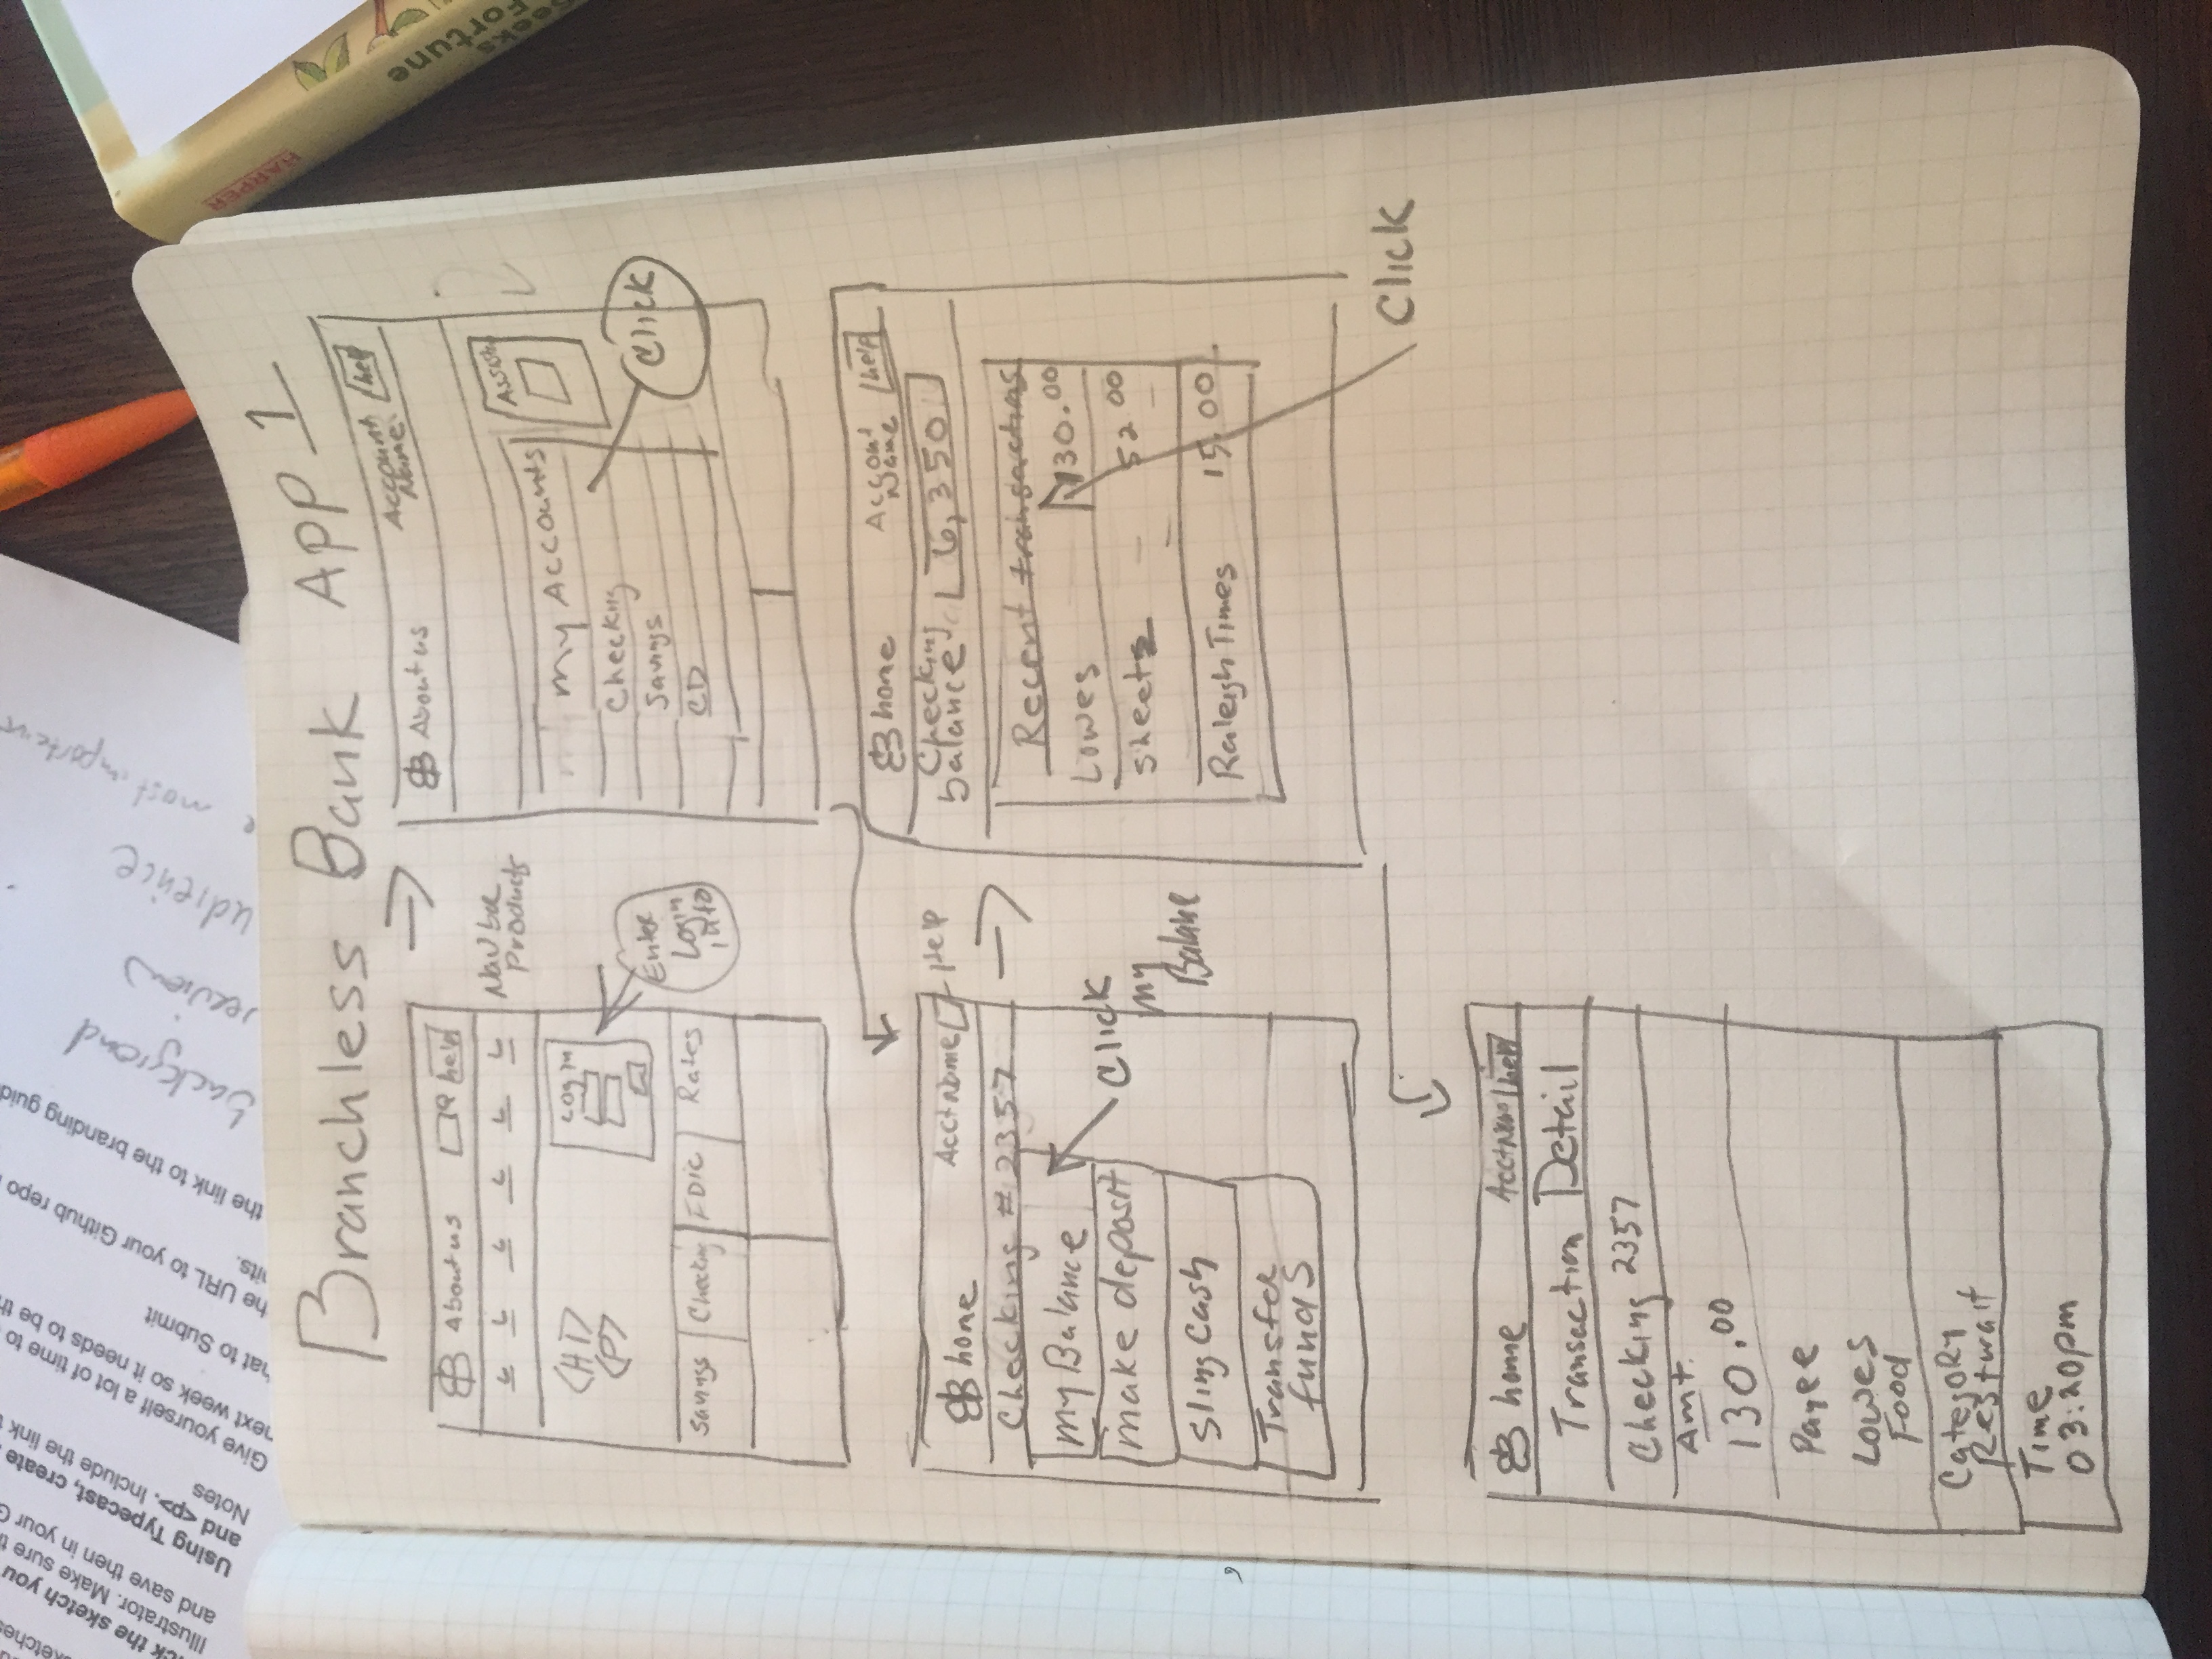 sketches
ck the sketch you
Illustrator. Make sure
and save then in your G
Using Typecast, create
and <p>. Include the link
Notes
Give yourself a lot of time to
next week so it needs to be
hat to Submit
he URL to your Github repo
its.
the link to the branding guid
background
review
udience
most important
HARPER
Fortune
Branchless Bank App 1
About us help
Navbar
Products
<H1>
<P>
Log in
Enter
Login
info
Savings Checking FDIC Rates
About us Account
Name help
My Accounts
Checking
Savings
CD
Click
home Acct Name Help
Checking # 2357
My Balance
make deposit
Sling Cash
Transfer
funds
Click
My
Balane
home Account
Name help
Checking
balance 6,350
Recent transactions
Lowes 130.00
Sheetz 52.00
Raleigh Times 15.00
Click
home Acct Name help
Transaction Detail
Checking 2357
Amt.
130.00
Payee
Lowes
Food
Category
Time
03:20pm